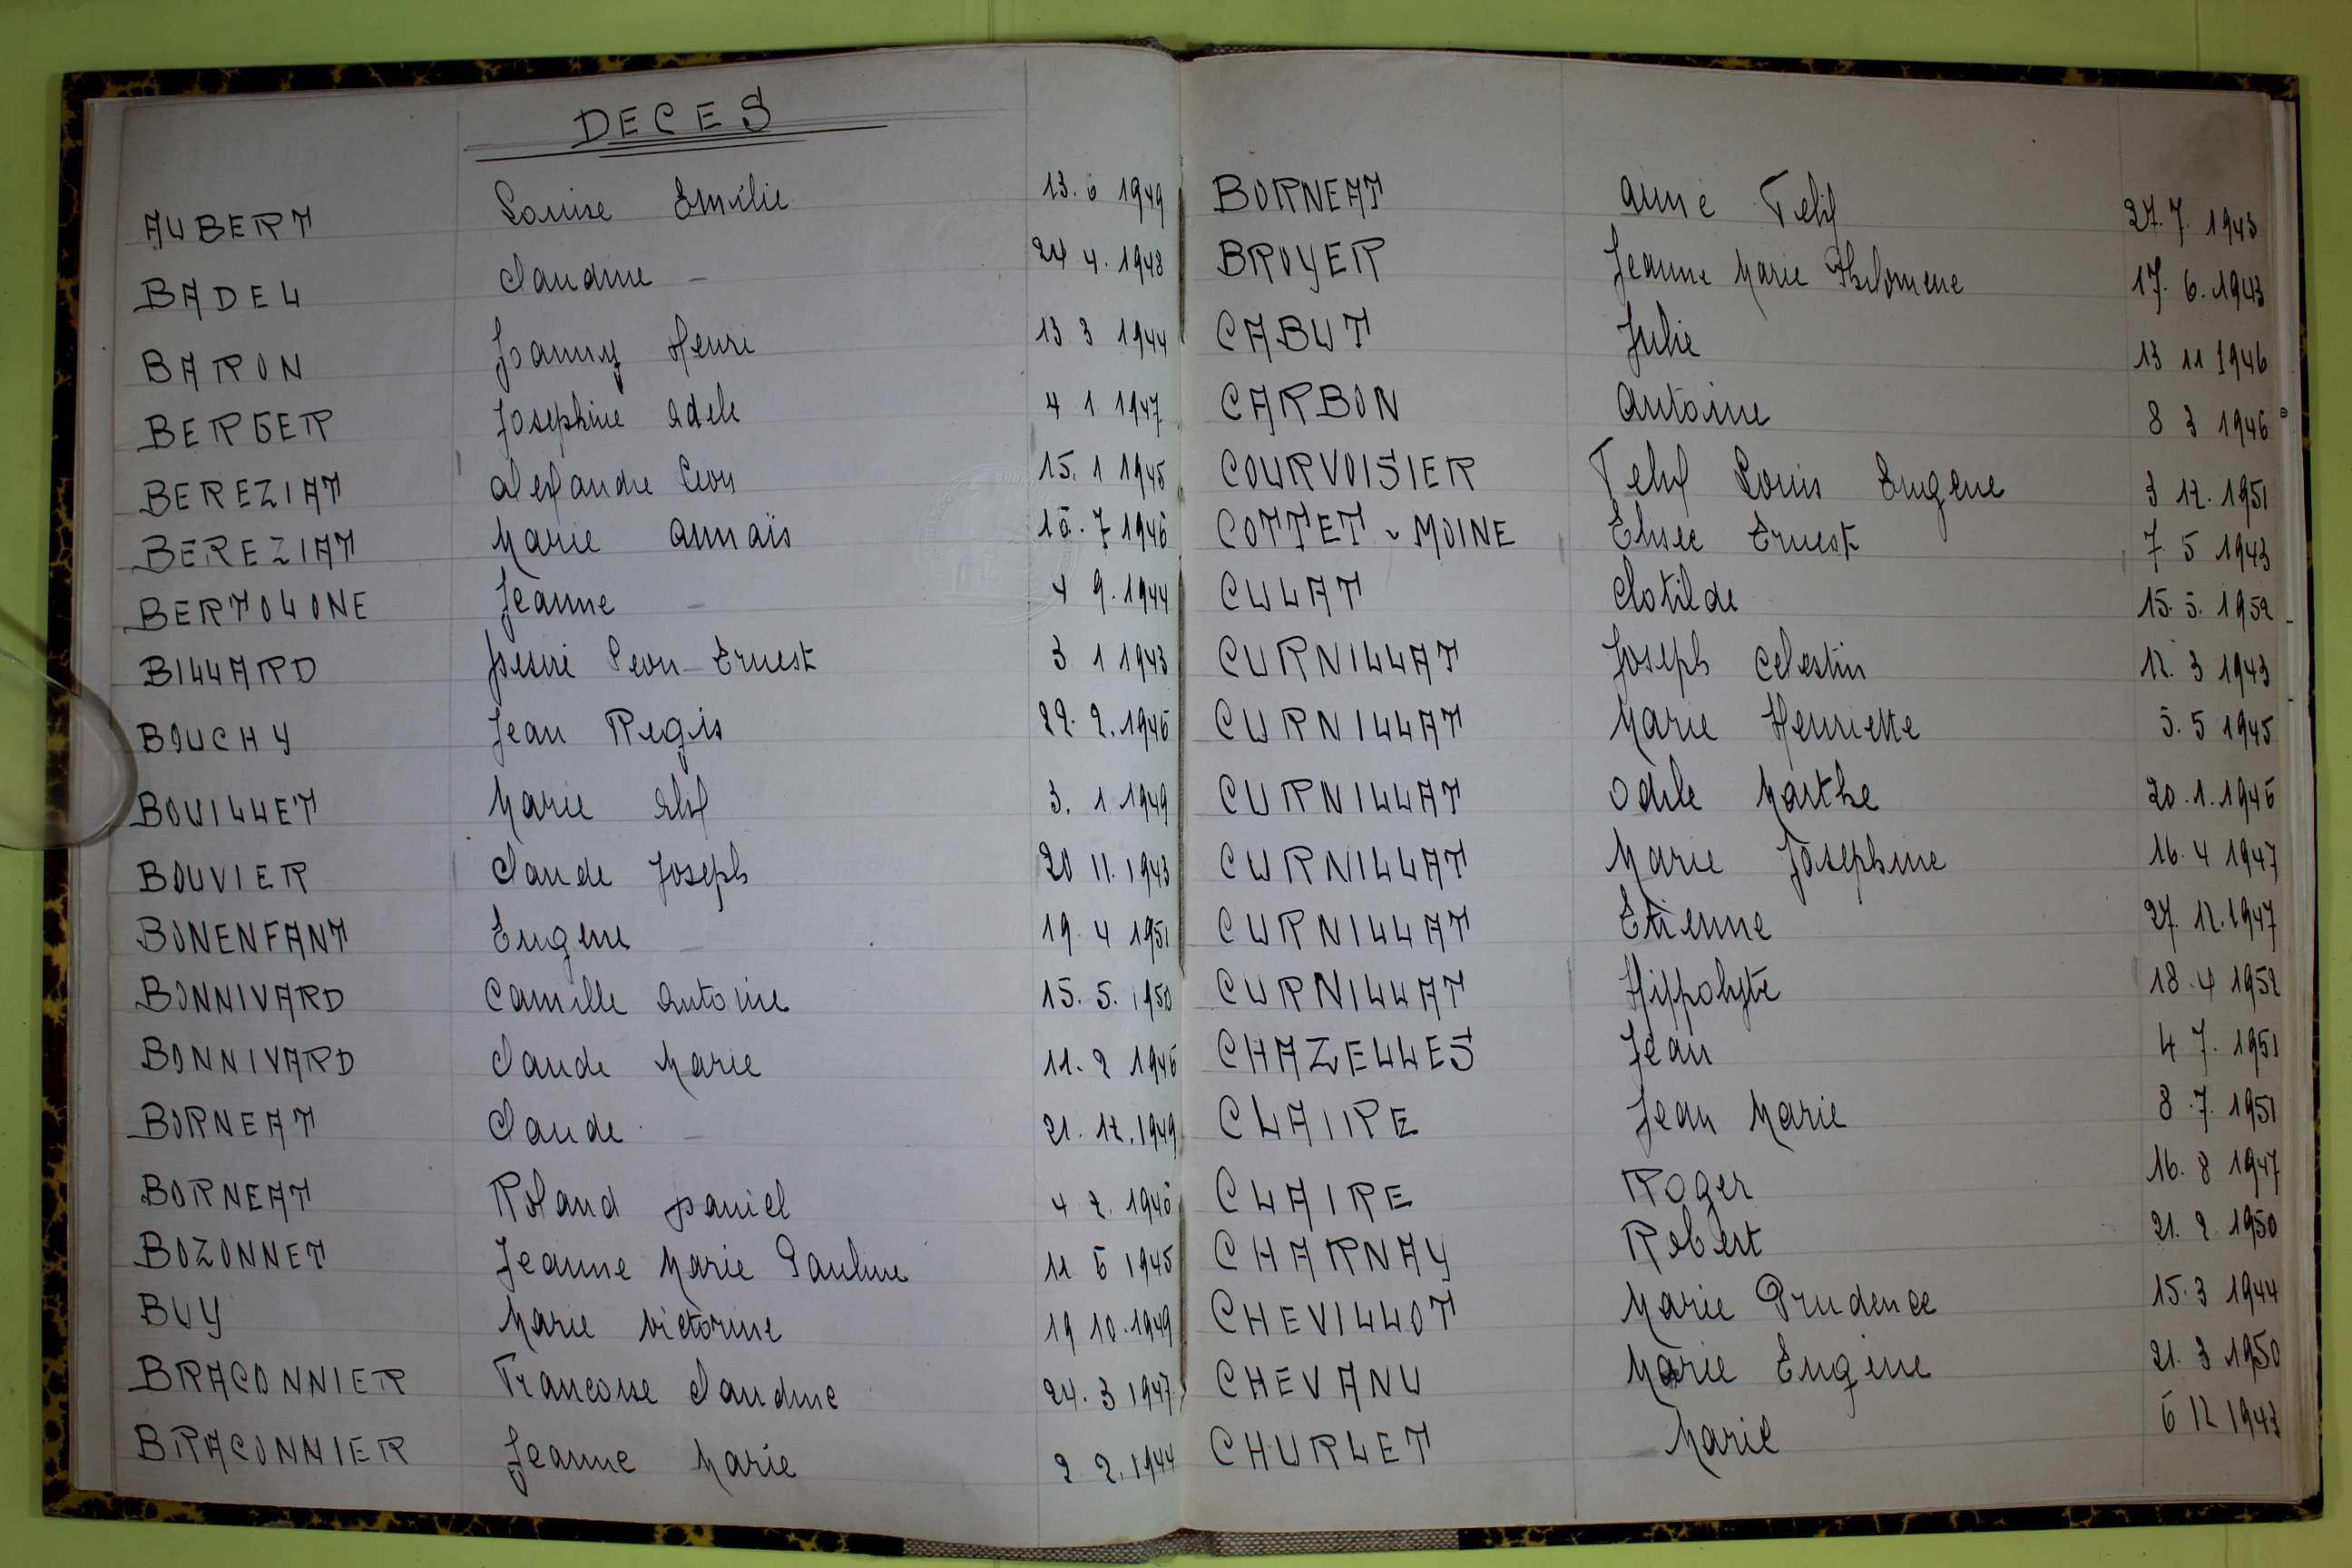 DECES
AUBERT Louise Emilie 13. 6 1949
BADEL Claudine - 24 4. 1948
BARON Joanny Henri 13 3 1944
BERGER Josephine Adele 4 1 1947
BEREZIAT Alexandre Leon 15. 1 1945
BEREZIAT Marie Annaïs 7 1946
BERTOLONE Jeanne - 4 9. 1944
BILLARD Desiré Leon Ernest 3 1 1943
BOUCHY Jean Regis 22. 2. 1946
BOUILLET Marie 3. 1 1949
BOUVIER Claude Joseph 20 11. 1943
BONENFANT Eugene - 19 4 1951
BONNIVARD Camille Antoine 15. 5. 1950
BONNIVARD Claude Marie 11. 2 1946
BORNEAT Claude - 21. 12. 1949
BORNEAT Roland Daniel 4 2. 1946
BOZONNET Jeanne Marie Pauline 11 6 1945
BUY Marie Victorine 19 10. 1949
BRACONNIER Francoise Claudine 24. 3 1947
BRACONNIER Jeanne Marie 2 2. 1944
BORNEAT Aimé Felix 27. 7. 1943
BROYER Jeanne Marie Philomene 17. 6. 1943
CABUT Julie 13 11 1946
CARBON Antoine 8 3 1946
COURVOISIER Felix Louis Eugene 3 12. 1951
COTTET - MOINE Elisee Ernest 7 5 1943
CULAT Clotilde 15. 5. 1952
CURNILLAT Joseph Celestin 12. 3 1943
CURNILLAT Marie Henriette 5. 5 1945
CURNILLAT Odile Marthe 20. 1. 1946
CURNILLAT Marie Josephine 16. 4 1947
CURNILLAT Etienne 27. 12. 1947
CURNILLAT Hippolyte 18. 4 1952
CHAZELLES Jean 4 7. 1951
CLAIRE Jean Marie 8. 7. 1951
CLAIRE Roger 16. 8 1947
CHARNAY Robert 21. 2 1950
CHEVILLOT Marie Prudence 15. 3 1944
CHEVANU Marie Eugene 21. 3 1950
CHURLET Marie 6 12 1943